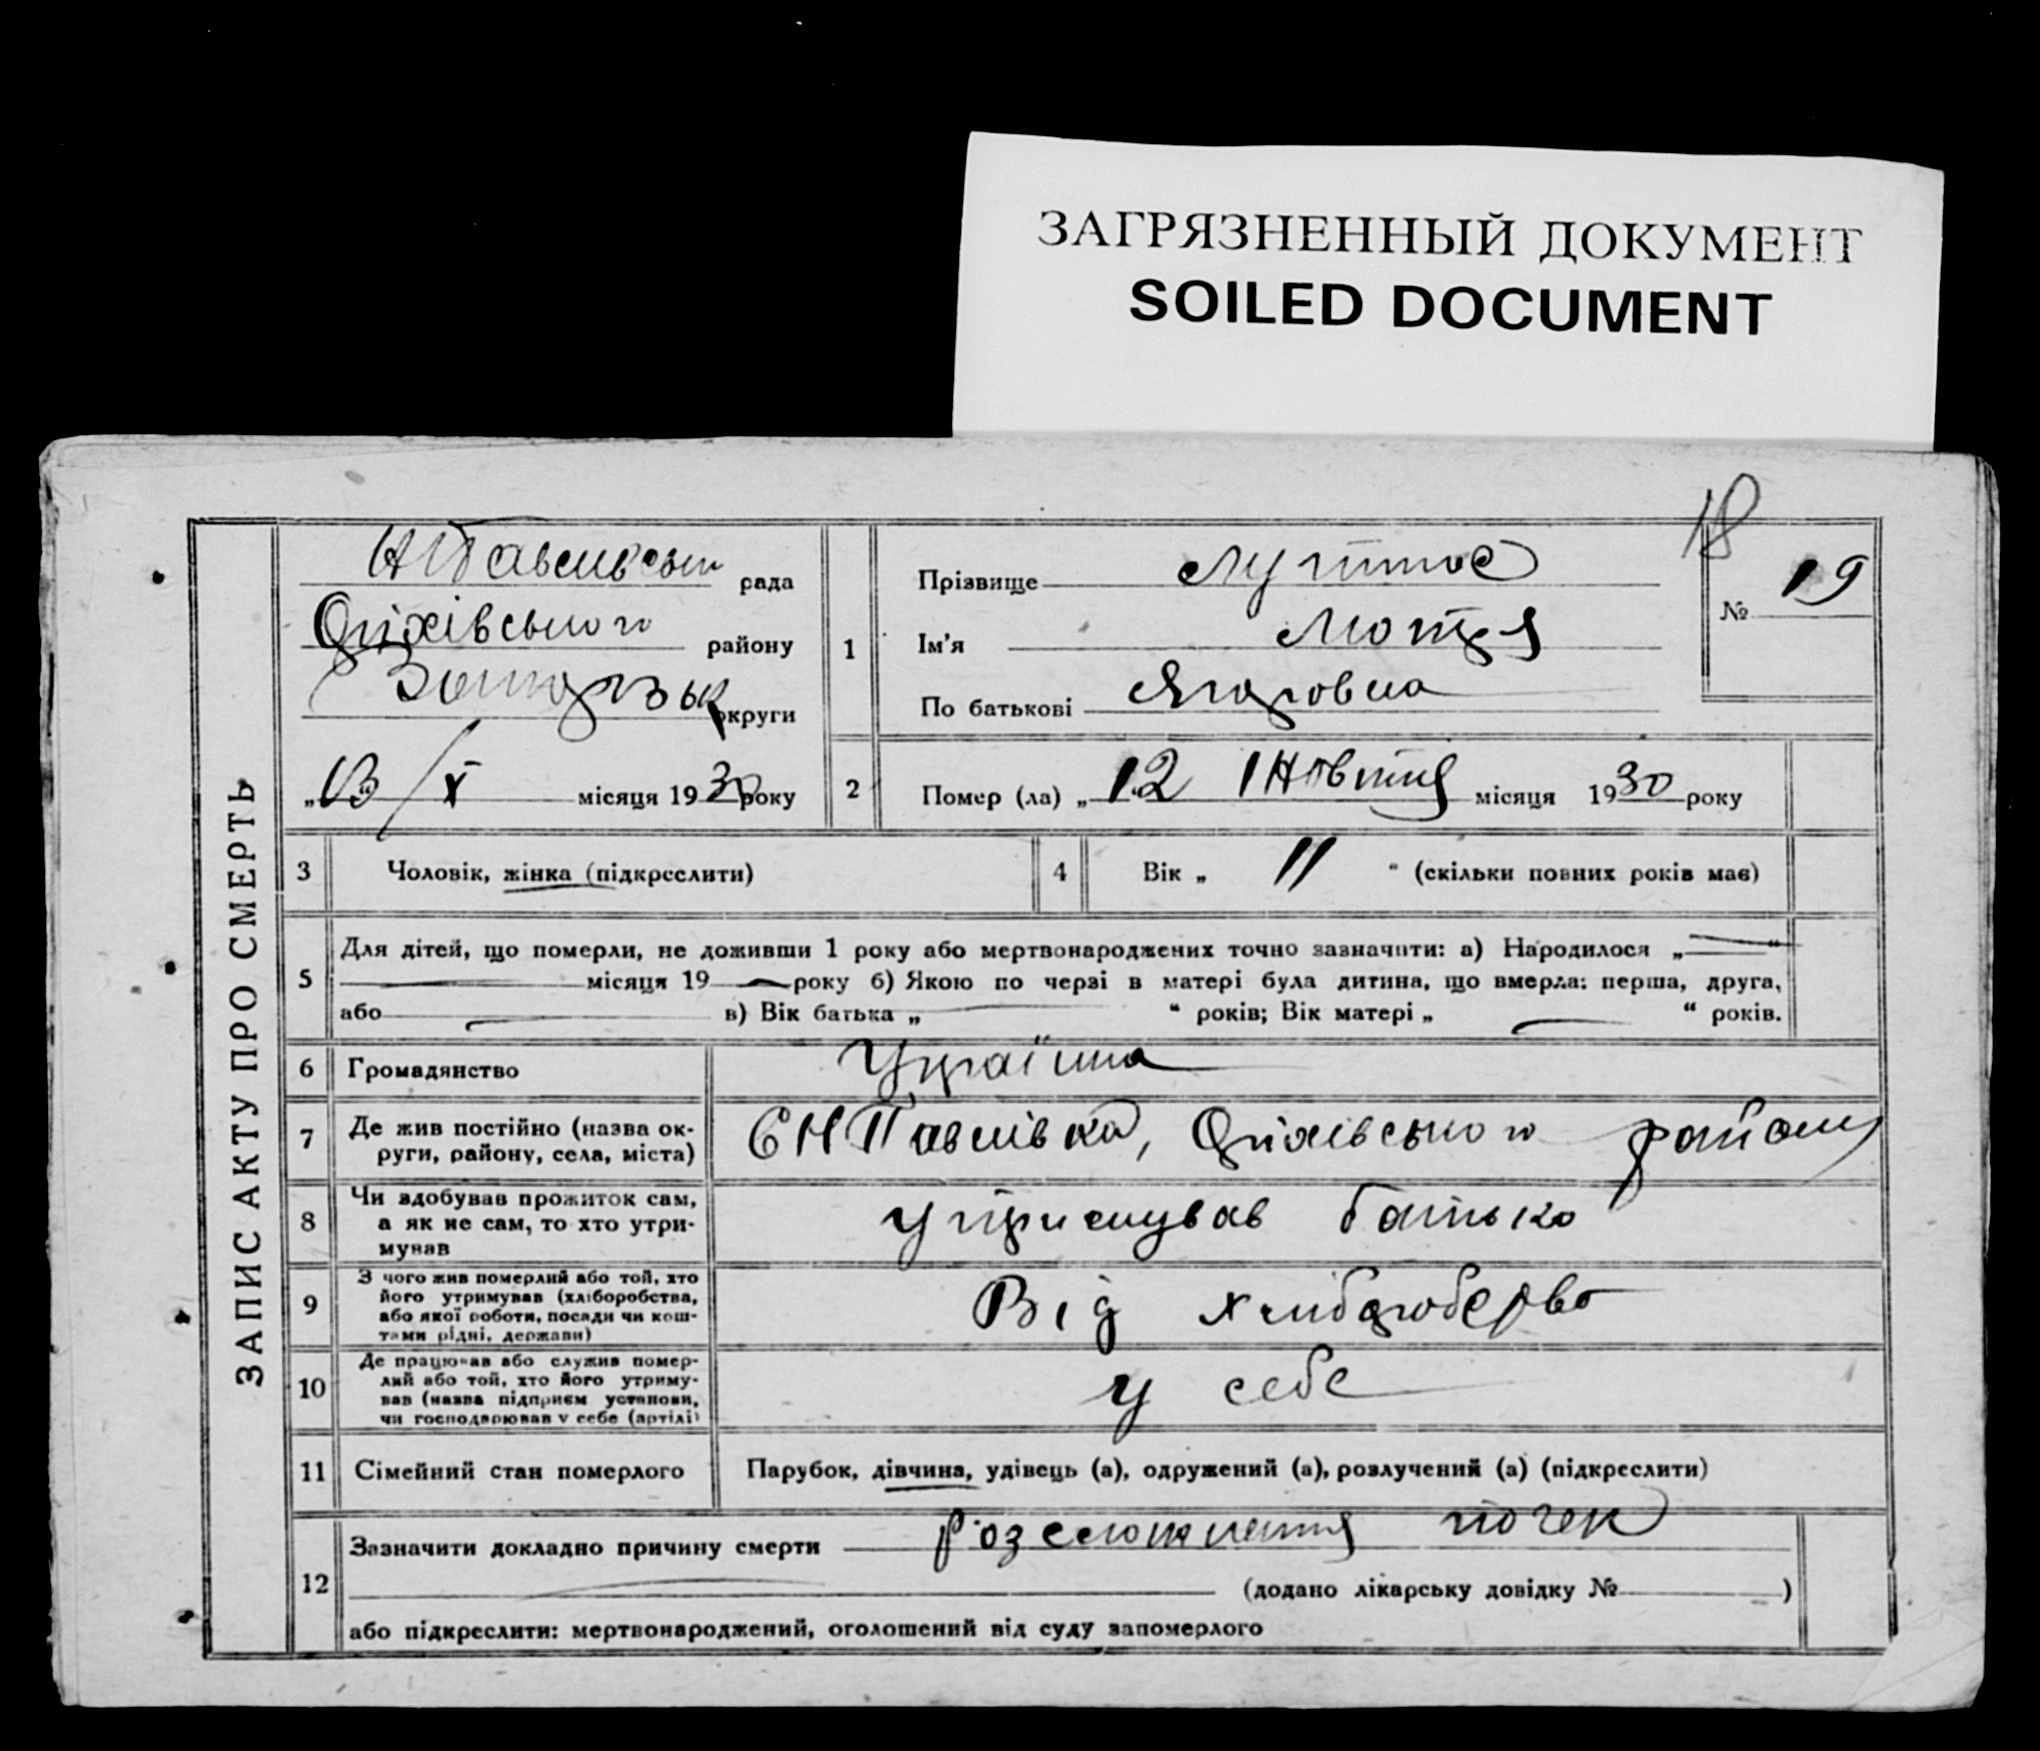 ЗАГРЯЗНЕННЫЙ ДОКУМЕНТ
SOILED DOCUMENT
18
ЗАПИС АКТУ ПРО СМЕРТЬ
НПавлівськ рада
Оріхівського району
округи
„13/X місяця 1930 року
1
Прізвище
Ім'я Мотря
По батькові Ягоровна
№ 19
2
Помер (ла) „12 Жовтня місяця 1930 року
3
Чоловік, жінка (підкреслити)
4
Вік „ 11 “ (скільки повних років має)
5
Для дітей, що померли, не доживши 1 року або мертвонароджених точно зазначити: а) Народилося „ “
місяця 19 року б) Якою по черзі в матері була дитина, що вмерла: перша, друга,
або в) Вік батька „ “ років; Вік матері „ “ років.
6
Громадянство
Україна
7
Де жив постійно (назва ок-
руги, району, села, міста)
СНПавлівка, Оріхівського району
8
Чи здобував прожиток сам,
а як не сам, то хто утри-
мував
утримував батько
9
З чого жив померлий або той, хто
його утримував (хліборобства,
або якої роботи, посади чи кош-
тами рідні, держави)
Від
10
Де працював або служив помер-
лий або той, хто його утриму-
вав (назва підприєм установи,
чи господарював у себе (артілі)
у себе
11
Сімейний стан померлого
Парубок, дівчина, удівець (а), одружений (а), розлучений (а) (підкреслити)
12
Зазначити докладно причину смерти почек
(додано лікарську довідку № )
або підкреслити: мертвонароджений, оголошений від суду запомерлого